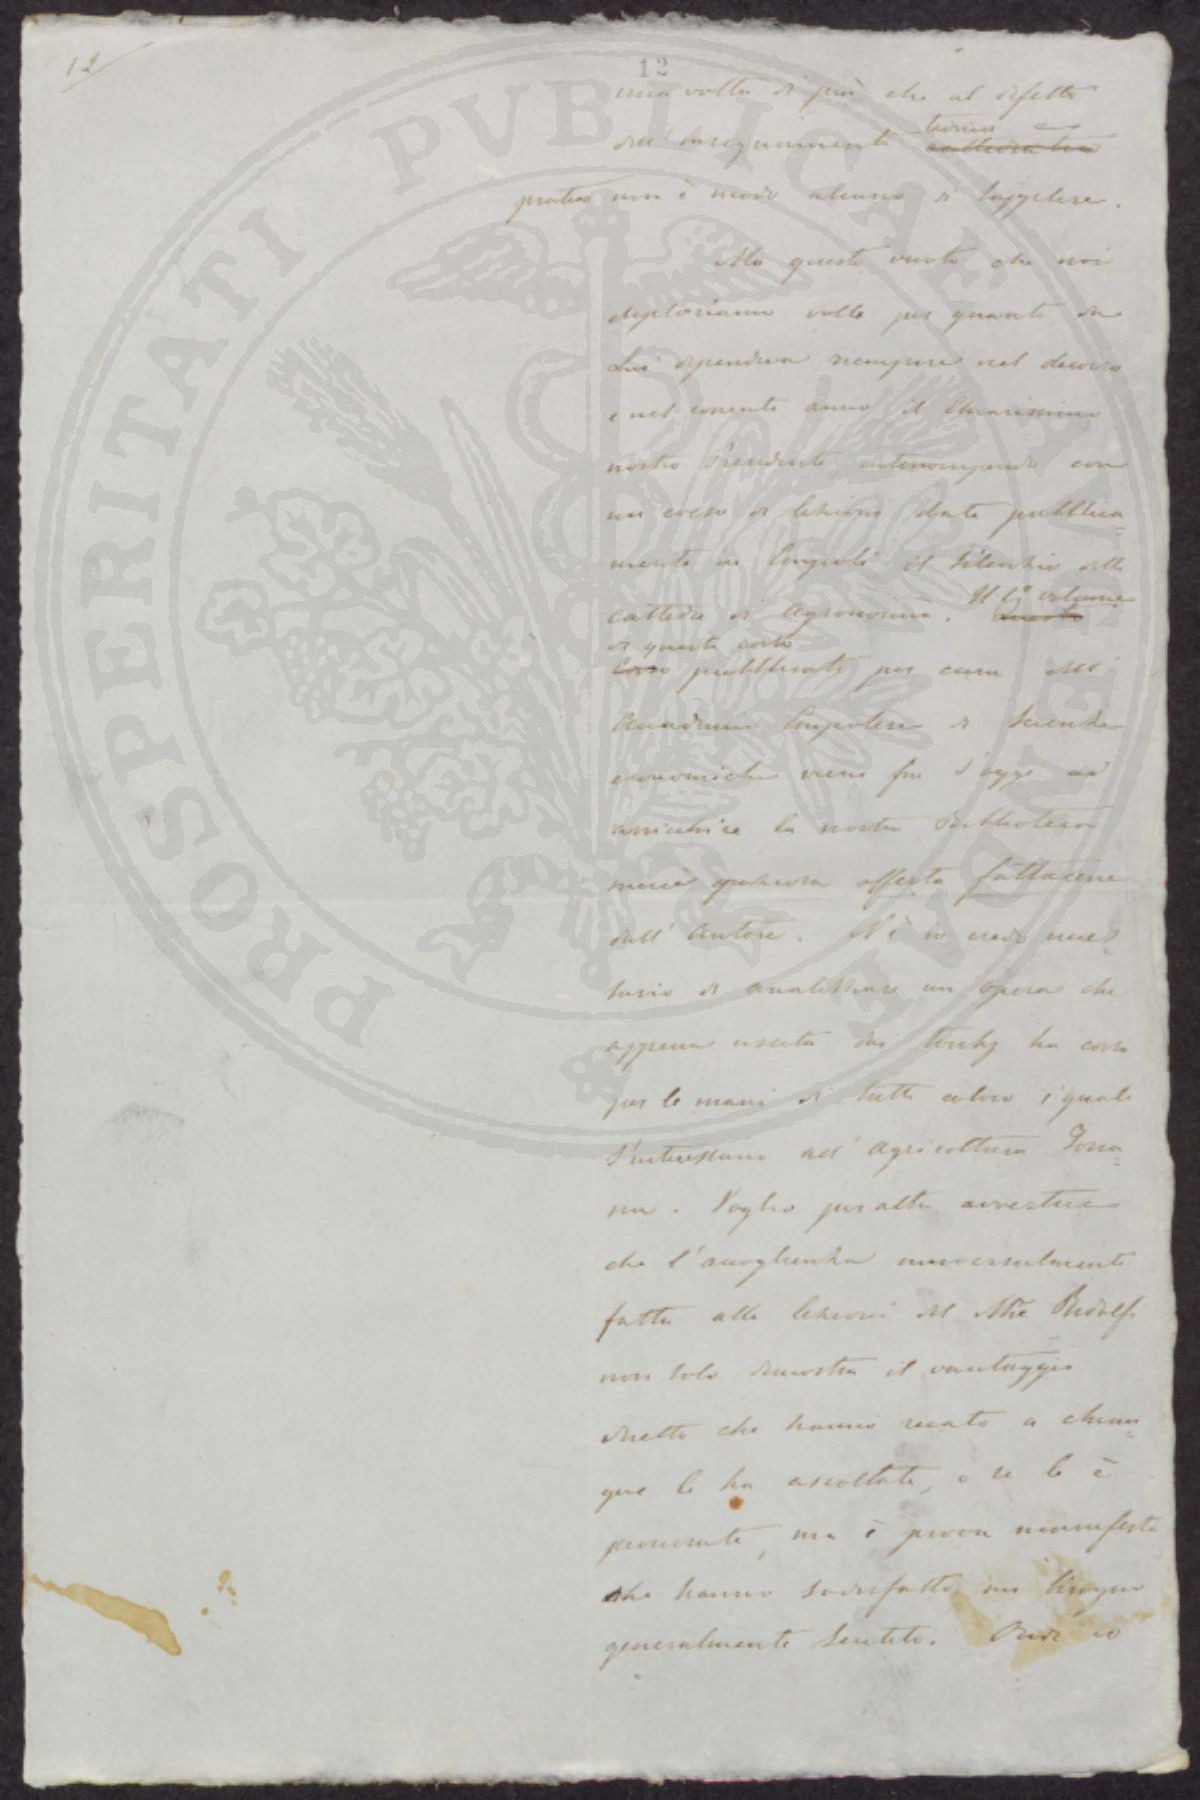 12
12
una volta di più che al difetto
dell'insegnamento teorico e
cattedratico
pratico non è modo alcuno di supplire.
Ma questo vuoto che noi
deploriamo volle per quanto da
Lui dipendeva riempire nel decorso
e nel corrente anno il Chiarissimo
nostro Presidente, interrompendo con
un corso di lezioni date pubblica=
mente in Empoli il silenzio della
cattedra di Agronomia. Il 1º volume
Questo
di questo corso
Corso pubblicato per cura dell'
Accademia Empolese di Scienze
economiche viene fin d'oggi ad
arricchire la nostra Biblioteca
mercè graziosa offerta fattacene
dall'Autore. Nè io credo neces=
sario di analizzare un opera che
appena uscita dai torchj ha corso
per le mani di tutti coloro i quali
s'interessano all'Agricoltura Tosca=
na. Voglio per altro avvertire
che l'accoglienza universalmente
fatta alle lezioni del Mse Ridolfi
non solo dimostra il vantaggio
diretto che hanno recato a chiun=
que le ha ascoltate, o se le è
procurate, ma è prova manifesta
che hanno sodisfatto un bisogno
generalmente sentito. Onde io
PROSPERITATI PVBLICAE AVGENDAE